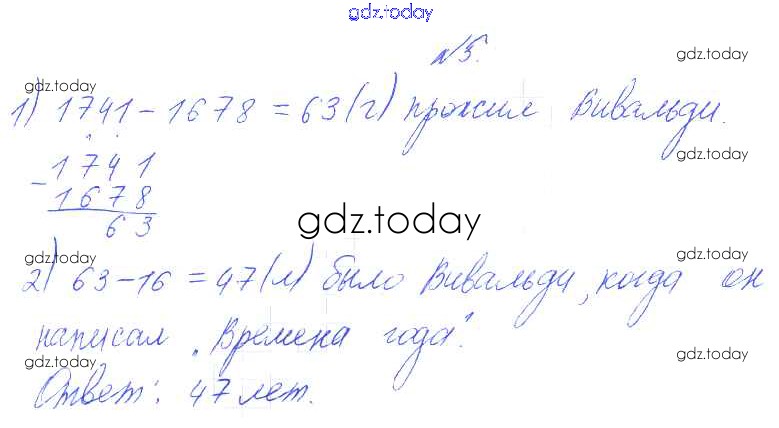 gdz.today
№5.
gdz.today
gdz.today
1) 1741 - 1678 = 63 (г) прожил Вивальди.
1741
gdz.today
- 1678
63
gdz.today
gdz.today
gdz.today
2) 63 - 16 = 47 (л) было Вивальди, когда он
написал „Времена года".
gdz.today
gdz.today
Ответ: 47 лет.